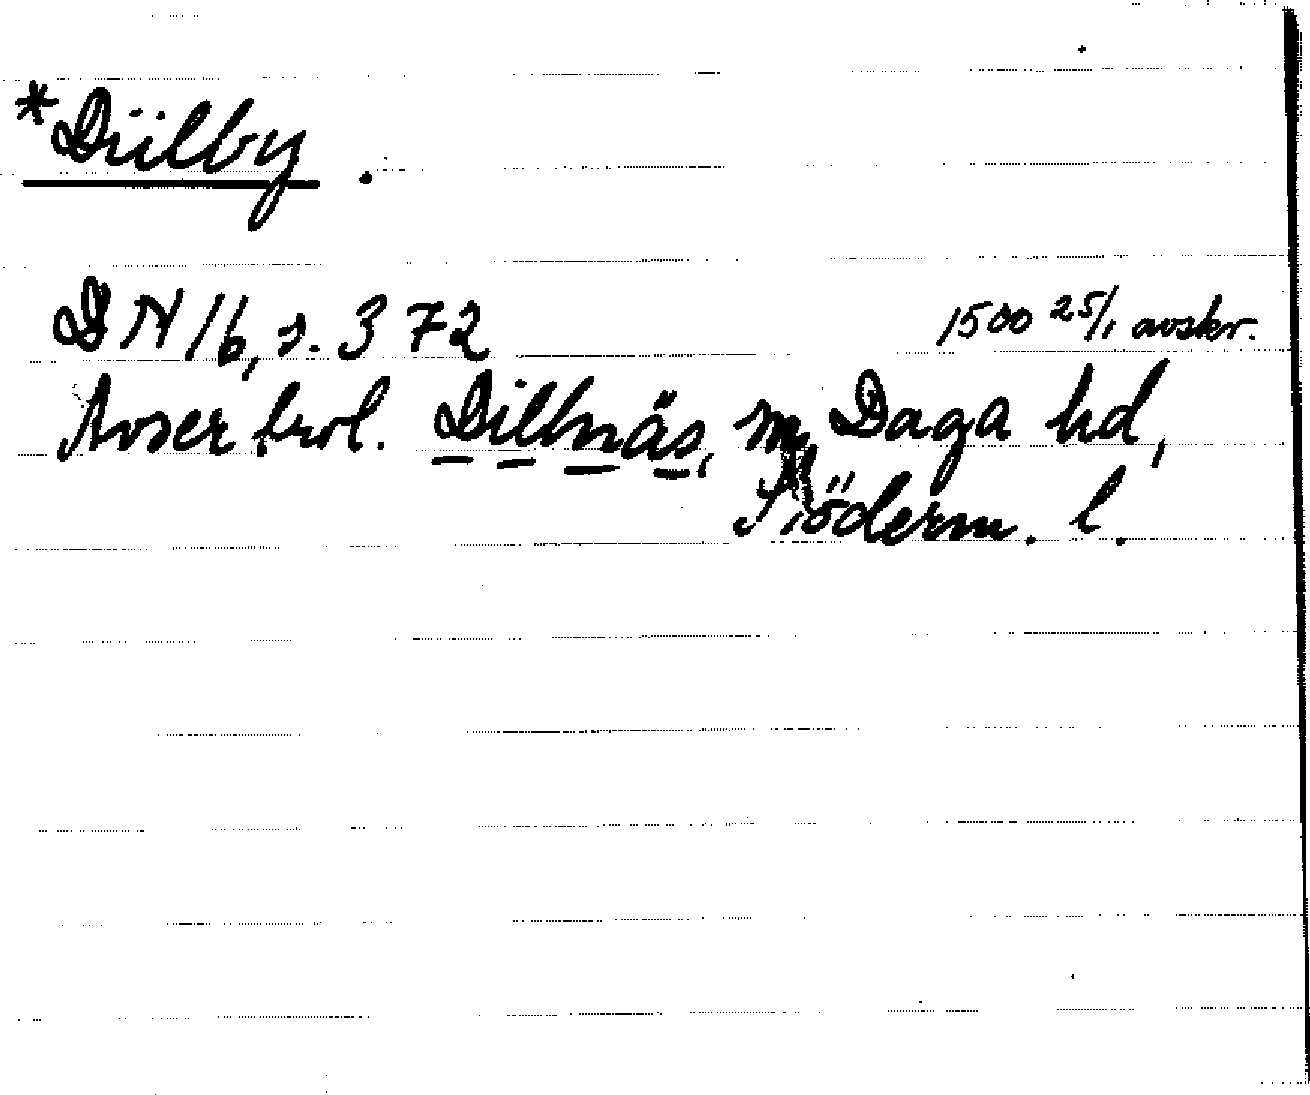 *Düilby.
DN 16, s. 372 1500 25/1 avskr.
Avser trol. Dillnäs, sn, Daga hd,
Söderm. l.